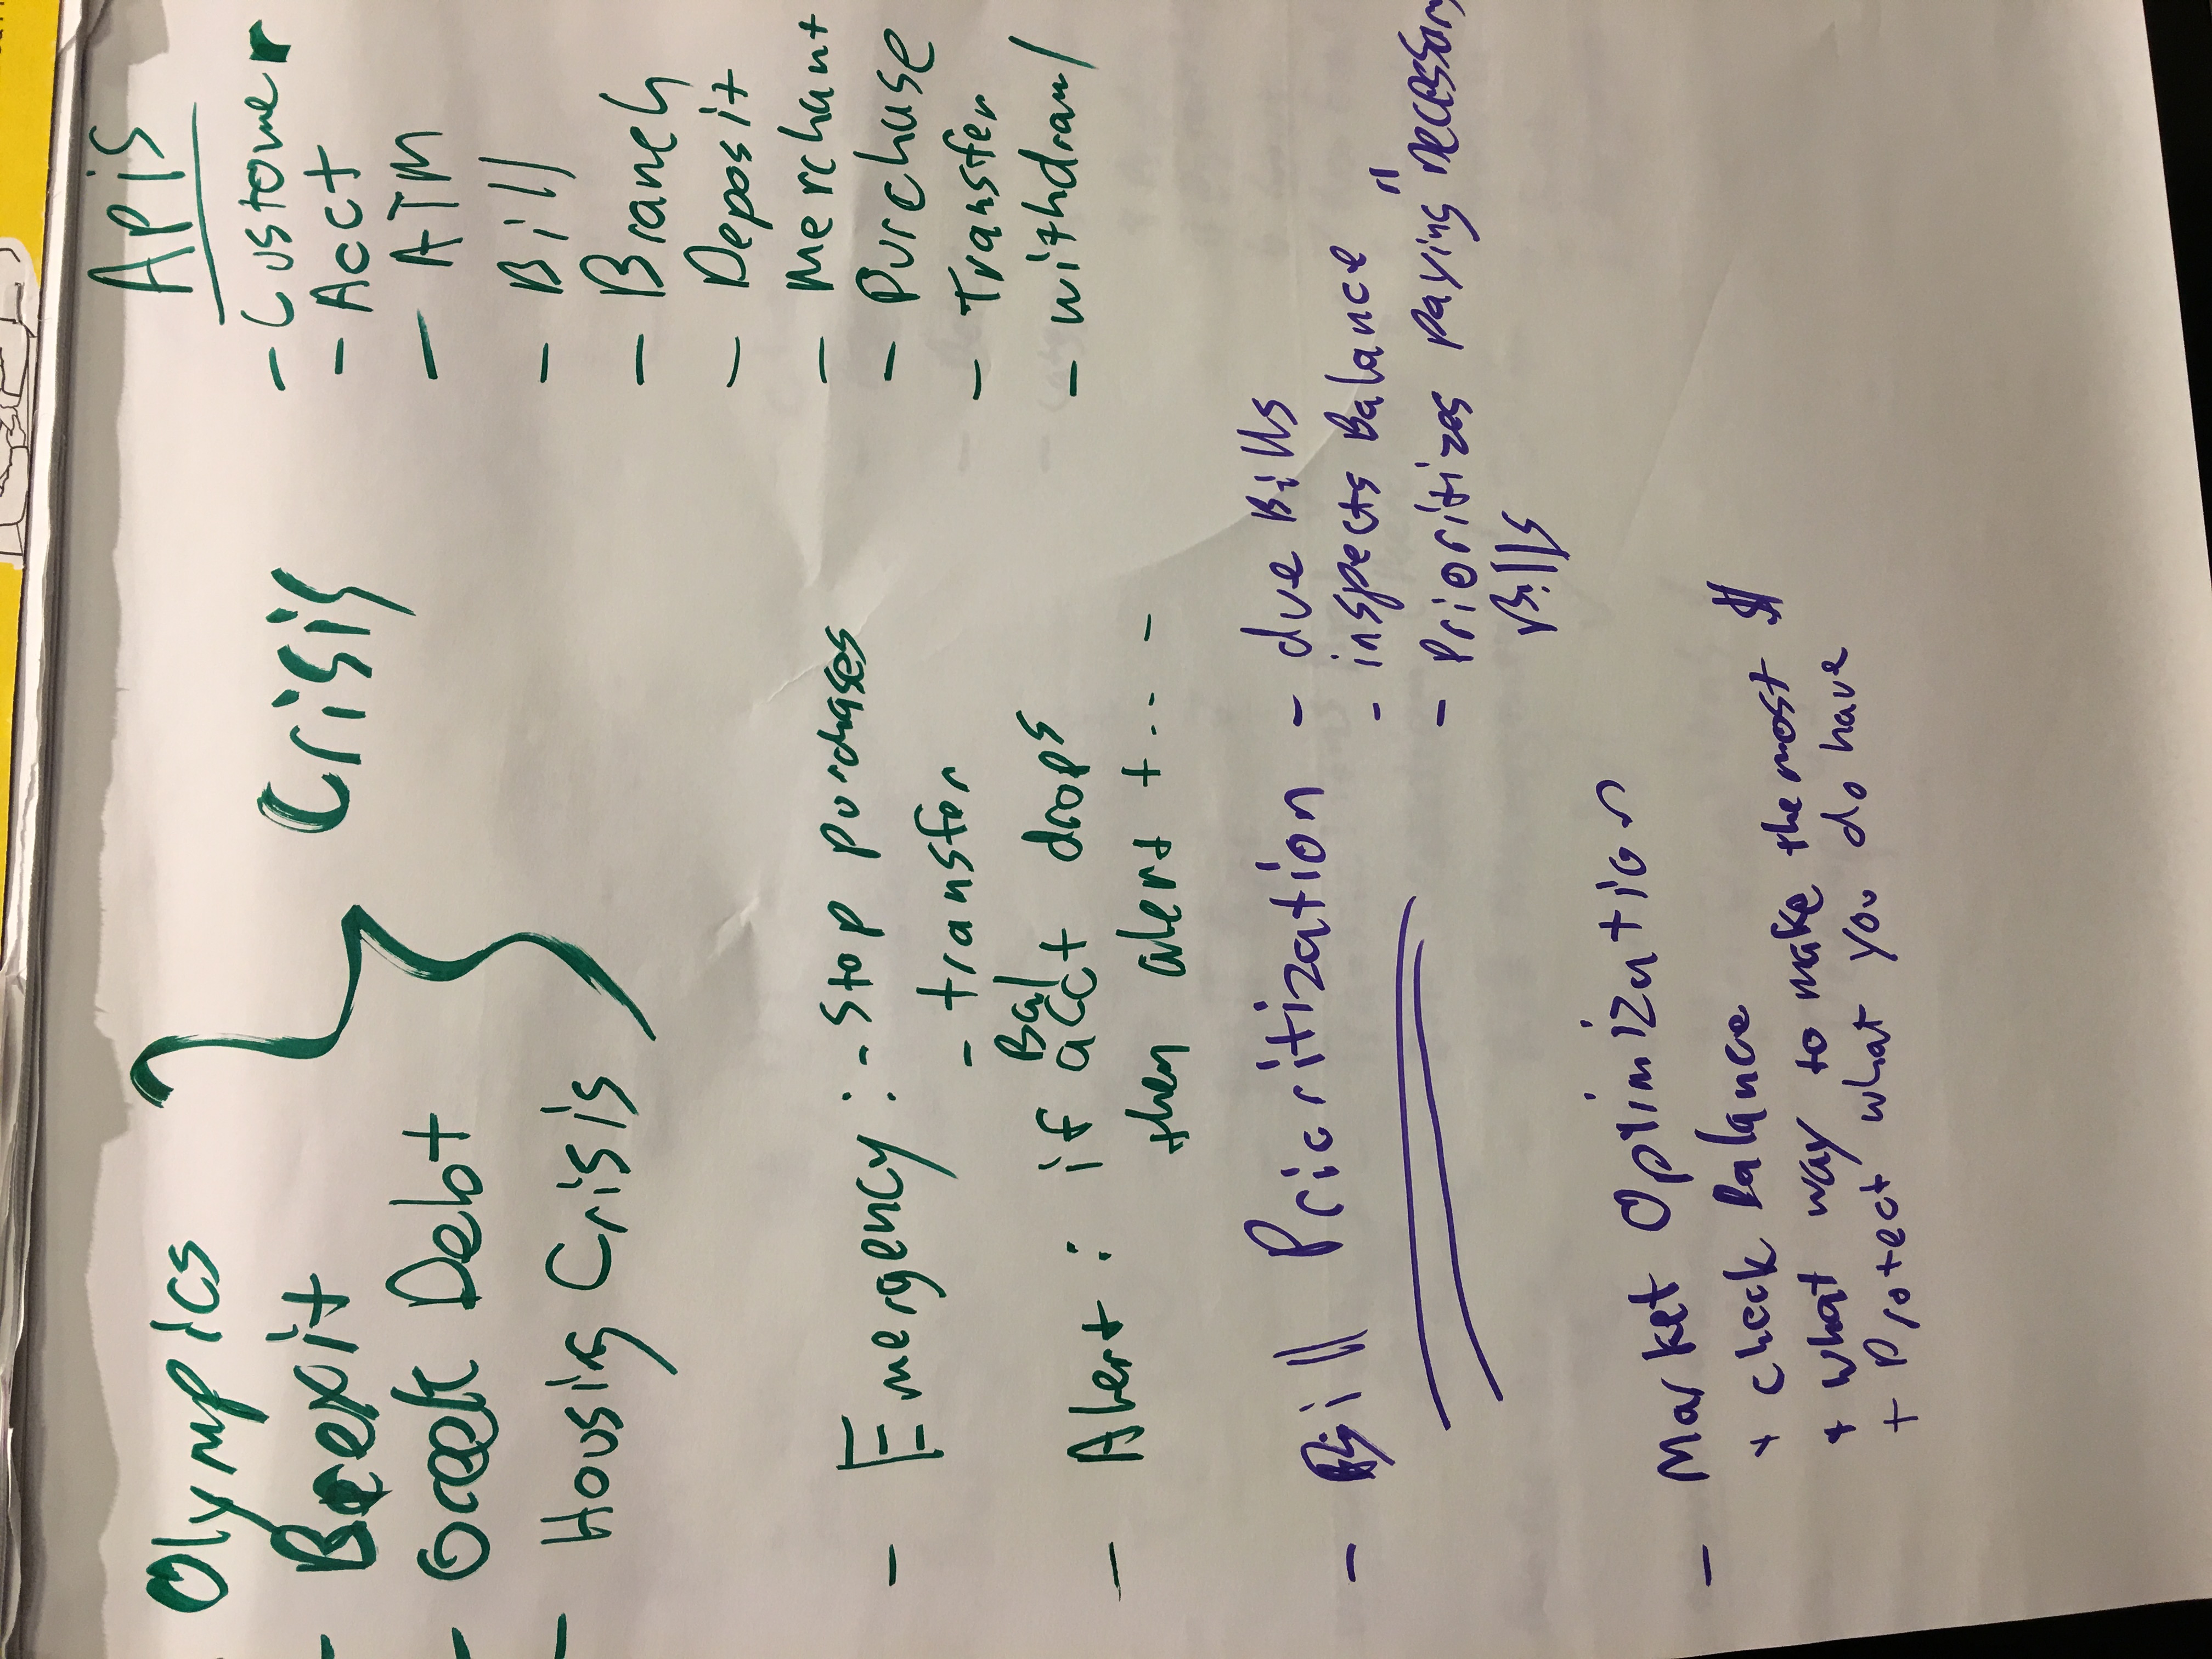 APIS
- Olympics
- Brexit
- Greek Debt
- Housing Crisis
Crisis
- Customer
- Acct
- ATM
- Bill
- Branch
- Deposit
- Merchant
- Purchase
- Transfer
- withdrawl
- Emergency : - Stop purchases
- transfer
- Alert : if Bal acct drops
then alert + . . -
- Bill Prioritization - due Bills
- inspects Balance
- Prioritizes paying "necessary"
Bills
- Market Optimization
+ check balance
+ what way to make the most $
+ Protect what you do have